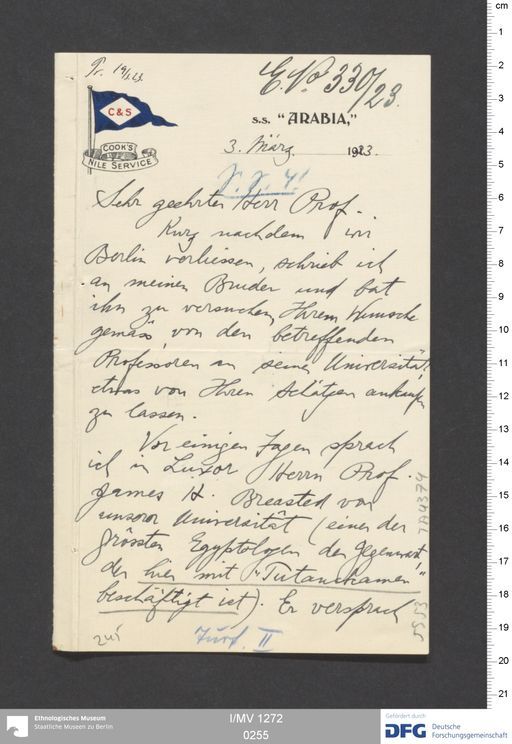 Pr. 19/3.23.
E. No 330/23.
C & S
COOK'S
NILE SERVICE
S.S. "ARABIA,"
3. März 1923.
Sehr geehrter Herr Prof.
Kurz nachdem wir
Berlin verliessen, schrieb ich
an meinen Bruder und bat
ihn zu versuchen, Ihrem Wunsche
gemäss, von den betreffenden
Professoren an seiner Universität,
etwas von Ihren Schätzen ankaufen
zu lassen.
Vor einigen Tagen sprach
ich in Luxor Herrn Prof.
James H. Breasted von
unserer Universität (einer der
grössten Egyptologen der Gegenwart,
der hier mit "Tutanchamen"
beschäftigt ist). Er versprach
II
cm
1
2
3
4
5
6
7
8
9
10
11
12
13
14
15
16
17
18
19
20
21
Ethnologisches Museum
Staatliche Museen zu Berlin
I/MV 1272
0255
Gefördert durch
DFG
Deutsche
Forschungsgemeinschaft